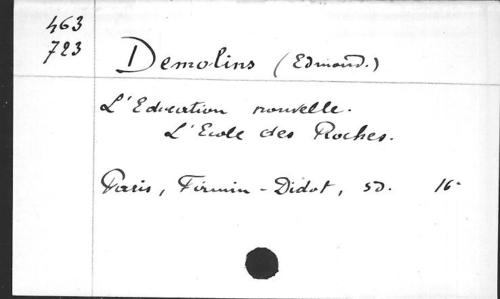 463
723
Demolins (Edmond.)
L'Education nouvelle.
L'Ecole des Roches.
Paris, Firmin-Didot, sd. 16°